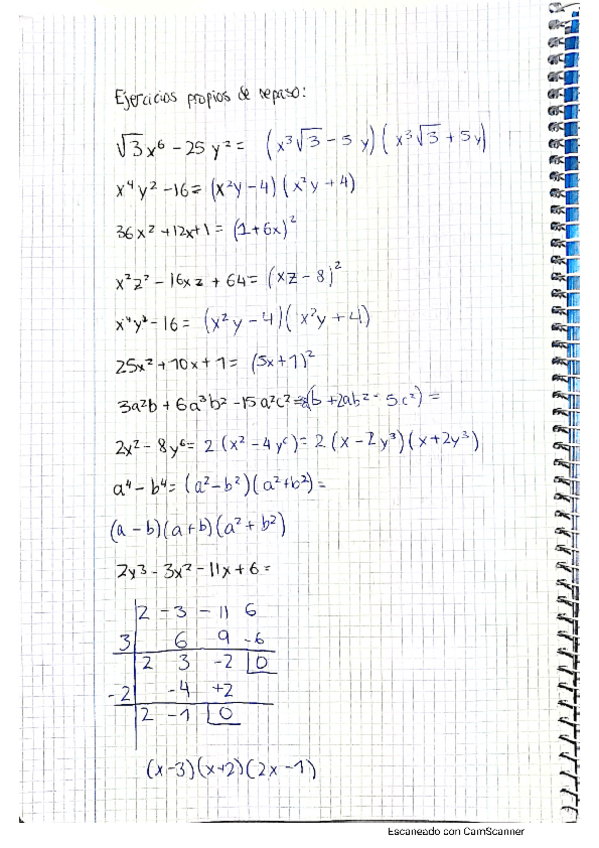 Ejercicios propios de repaso:
√3x⁶ - 25y² = (x³√3 - 5y)(x³√3 + 5y)
x⁴y² - 16 = (x²y - 4)(x²y + 4)
36x² + 12x + 1 = (1 + 6x)²
x²z² - 16xz + 64 = (xz - 8)²
x⁴y² - 16 = (x²y - 4)(x²y + 4)
25x² + 10x + 1 = (5x + 1)²
3a²b + 6a³b² - 15a²c² = (b + 2ab² - 5c²) =
2x² - 8y⁶ = 2(x² - 4y⁶) = 2(x - 2y³)(x + 2y³)
a⁴ - b⁴ = (a² - b²)(a² + b²) =
(a - b)(a + b)(a² + b²)
2y³ - 3x² - 11x + 6 =
2 -3 -11 6
3 6 9 -6
2 3 -2 0
-2 -4 +2
2 -1 0
(x - 3)(x + 2)(2x - 1)
Escaneado con CamScanner